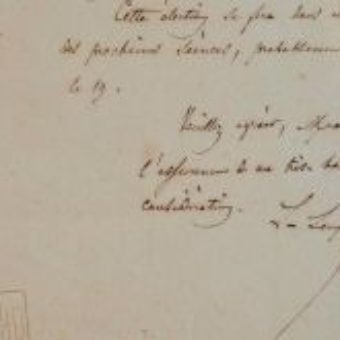 Cette élection se fera dans
des prochaines séances, probablement
le 19.
Veuillez agréer,
l'assurance de ma très
considération.